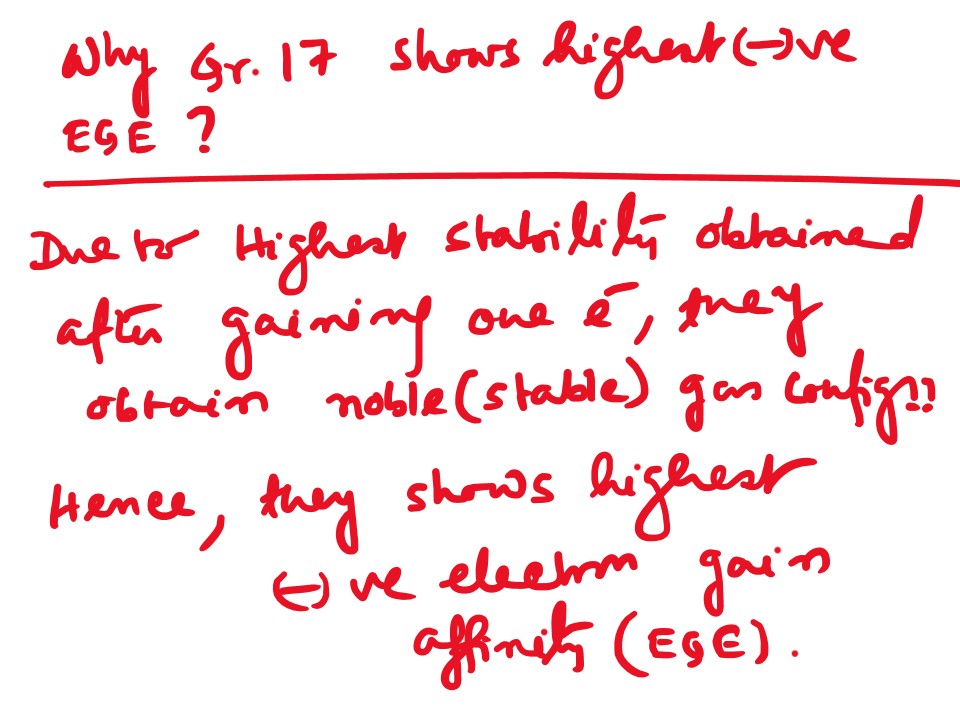 Why Gr. 17 shows highest (-)ve
EGE ?
Due to Highest stability obtained
after gaining one e⁻, they
obtain noble (stable) gas config!!
Hence, they shows highest
(-)ve electron gain
affinity (EGE).